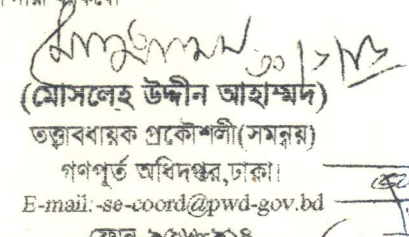 (মোসলেহ উদ্দীন আহাম্মদ)
তত্ত্বাবধায়ক প্রকৌশলী(সমন্বয়)
গণপূর্ত অধিদপ্তর,ঢাকা।
E-mail:-se-coord@pwd-gov.bd
ফোন